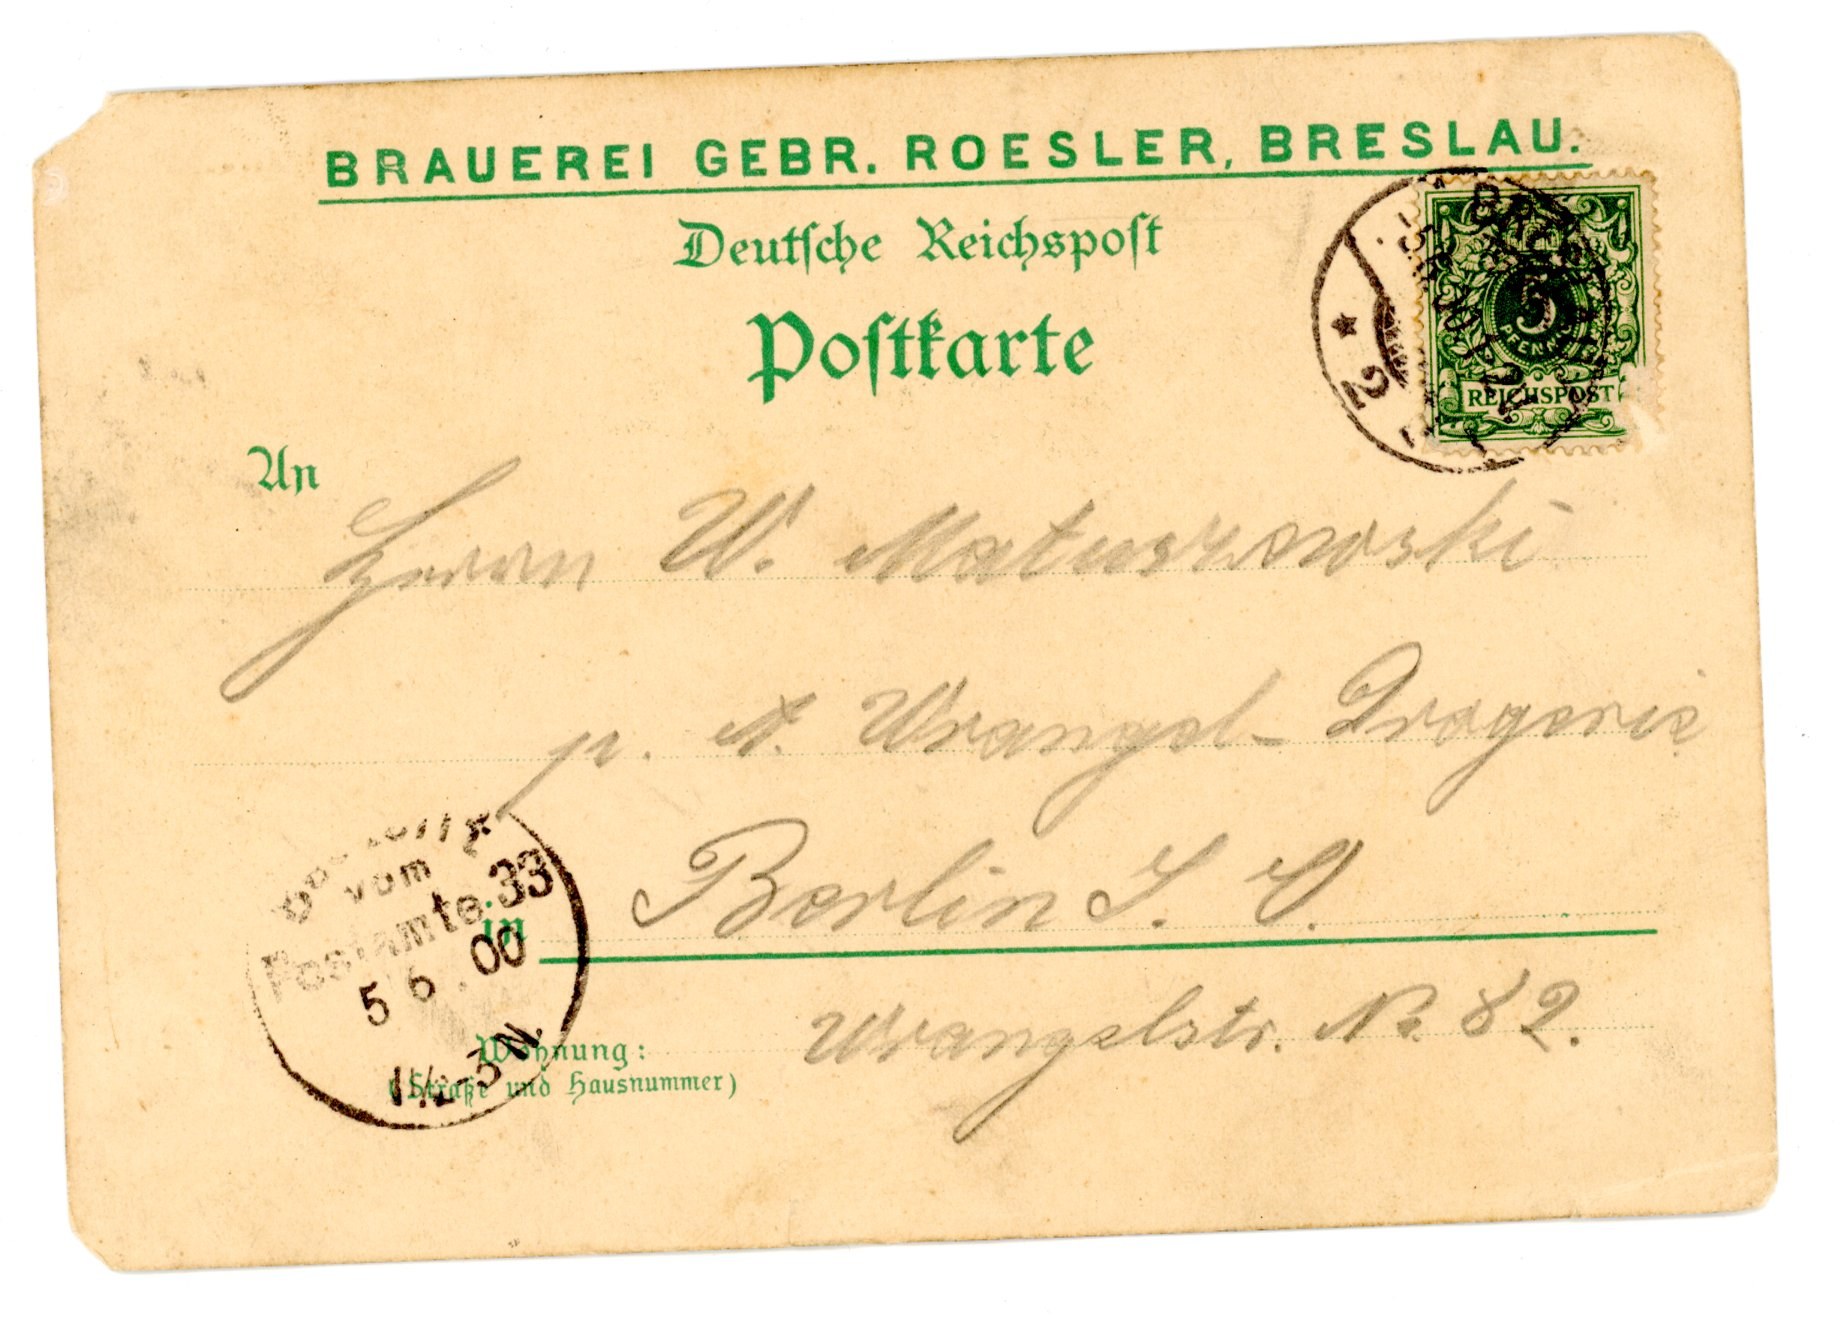 BRAUEREI GEBR. ROESLER, BRESLAU.
Deutſche Reichspoſt
Poſtkarte
5
PFENNIG
REICHSPOST
* 2
An
Herrn W. Matuszewski
p. A. Wrangel-Drogerie
in Berlin S. O.
Wrangelstr. No. 82.
Wohnung:
(Straße und Hausnummer)
vom
Postamte 33
5 6 . 00
1½-3N.